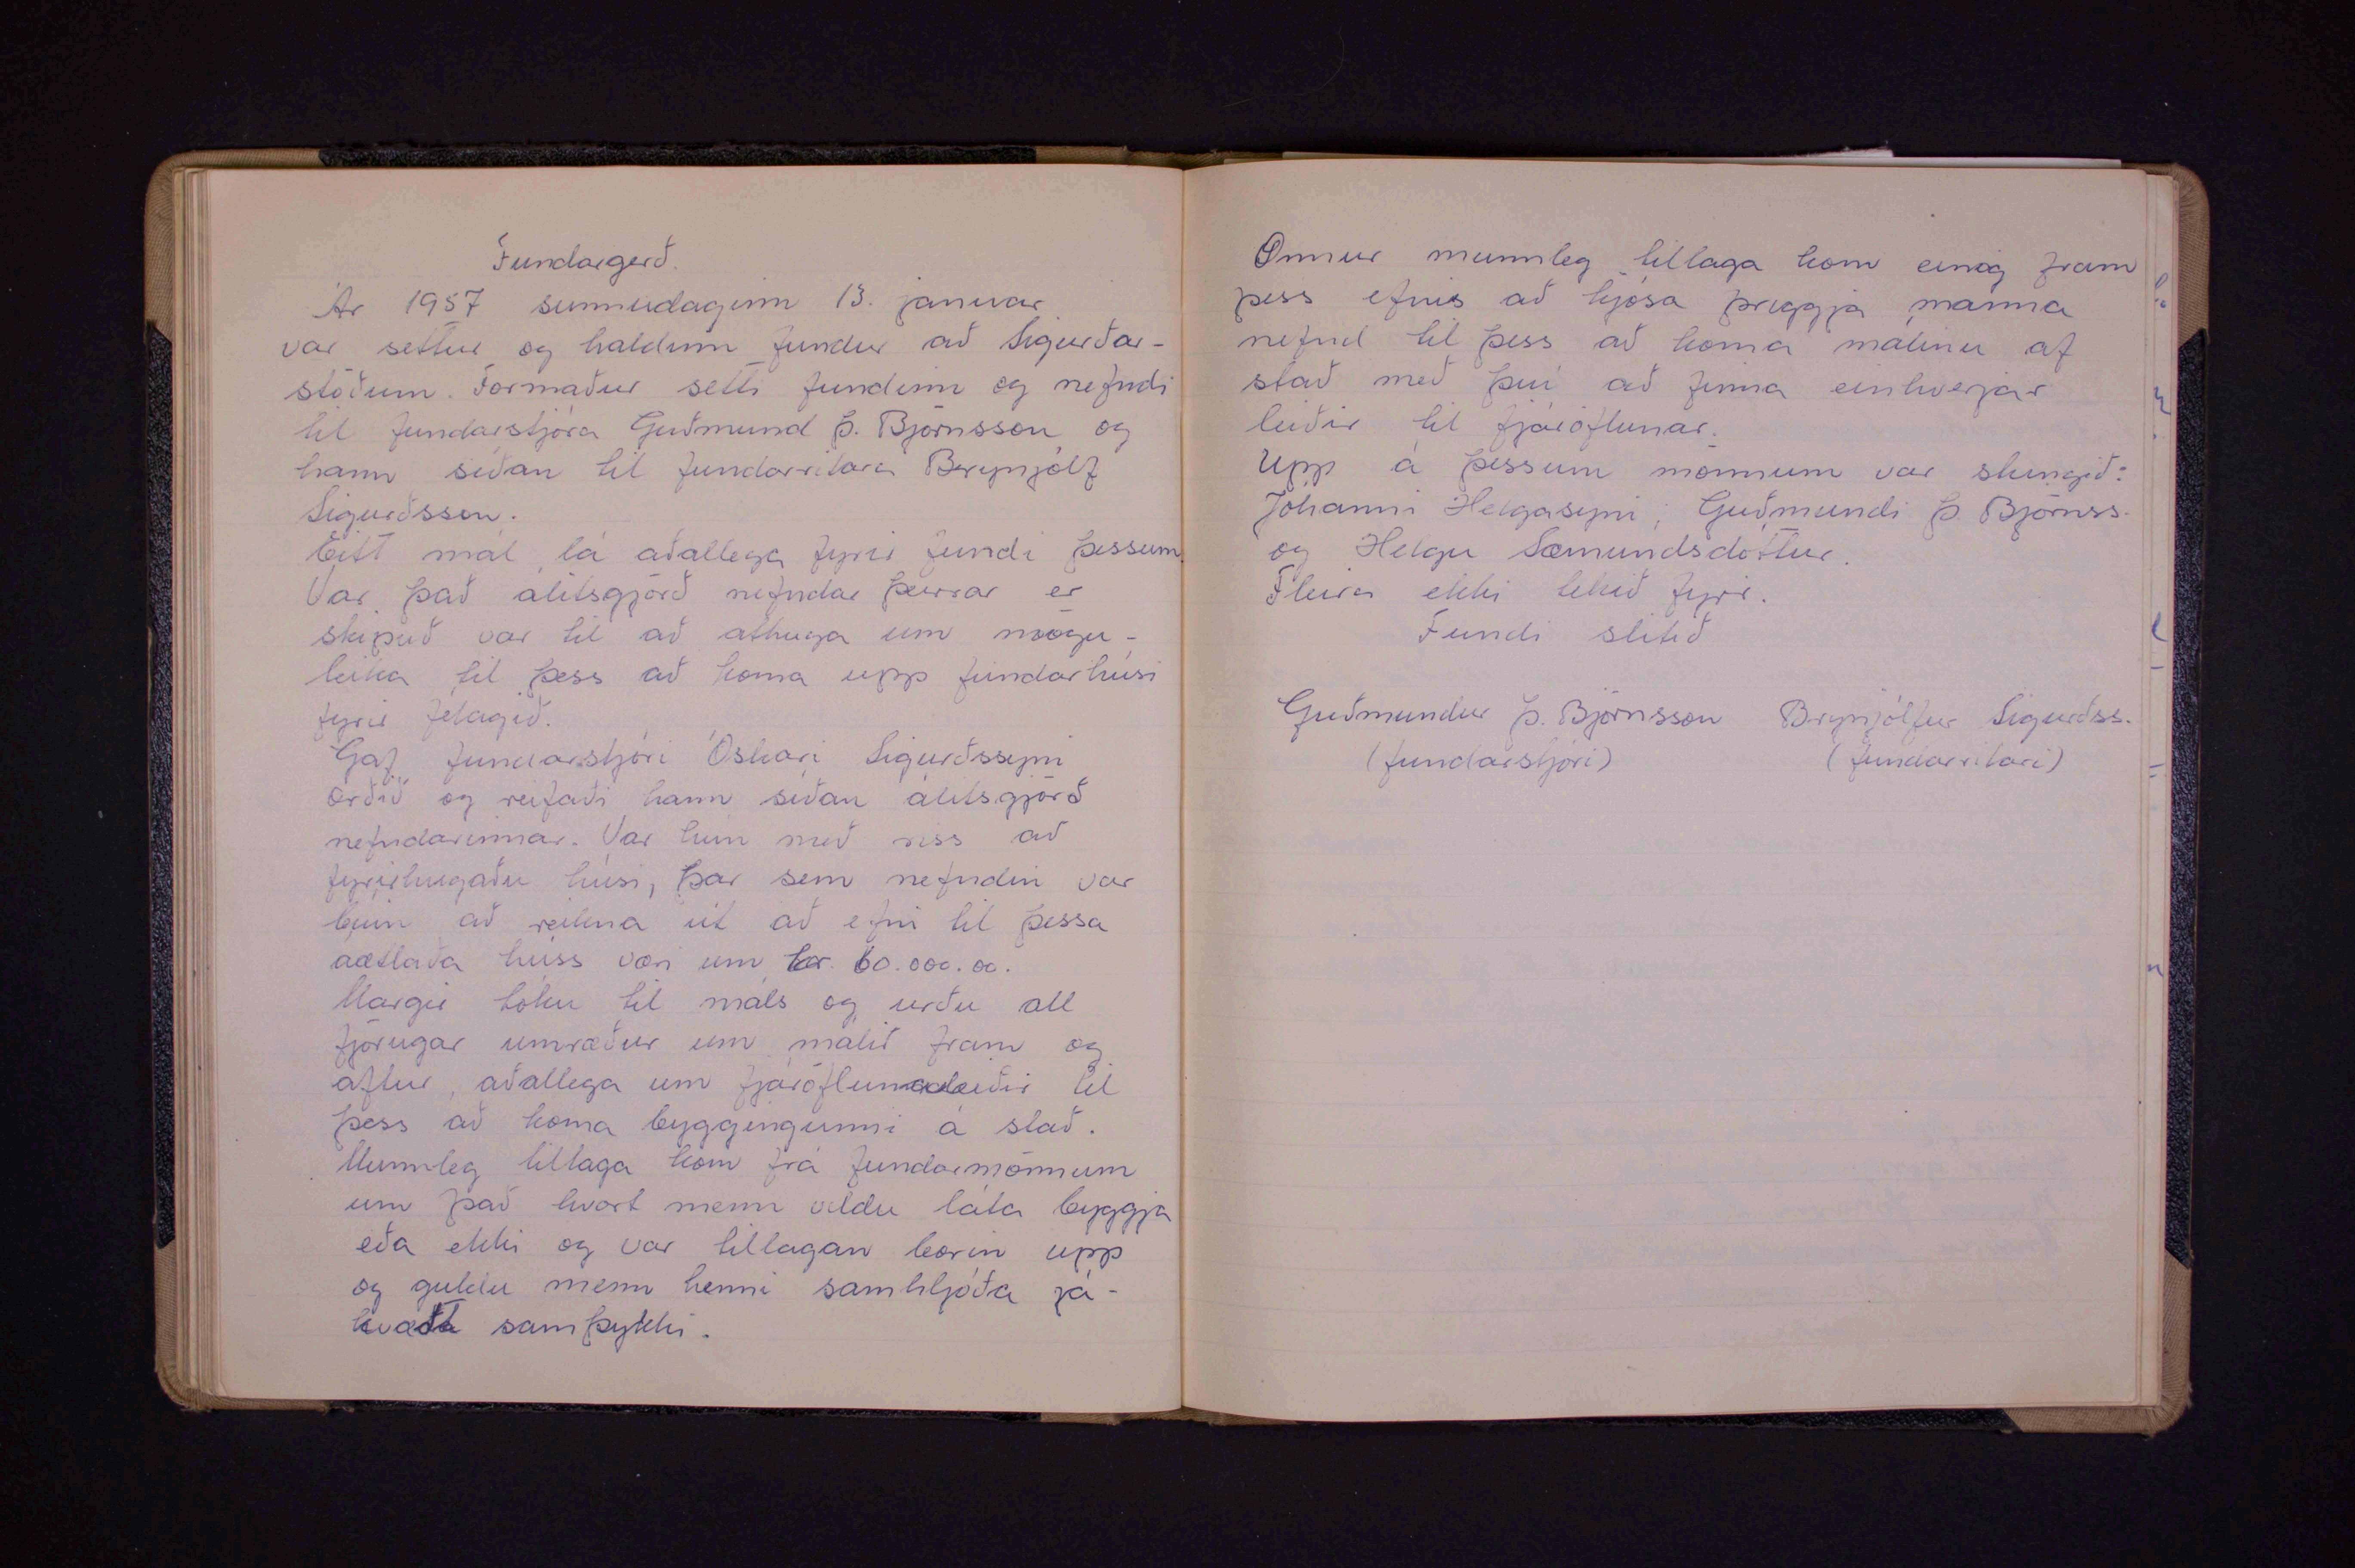 Fundargerð.
Ár 1957 sunnudaginn 13. januar
var settur og haldinn fundur að Sigurðar-
stöðum. Formaður setti fundinn og nefndi
til fundarstjóra Guðmund Þ. Björnsson og
hann síðan til fundarritara Brynjólf
Sigurðsson.
Eitt mál lá aðallega fyrir fundi þessum.
Var það álitsgjörð nefndar þeirrar er
skipuð var til að athuga um mögu-
leika til þess að koma upp fundarhúsi
fyrir félagið.
Gaf fundarstjóri Óskari Sigurðssyni
orðið og reifaði hann síðan álitsgjörð
nefndarinnar. Var hún með riss að
fyrirhugaðu húsi, þar sem nefndin var
búin að reikna út að efni til þessa
áætlaða húss væri um kr. 60.000.00.
Margir tóku til máls og urðu all
fjörugar umræður um málið fram og
aftur, aðallega um fjáröflunaleiðir til
þess að koma byggingunni á stað.
Munnleg tillaga kom frá fundarmönnum
um það hvort menn vildu láta byggja
eða ekki og var tillagan borin upp
og guldu menn henni samhljóða já-
kvæða samþykki.
Önnur munnleg tillaga kom einig fram
þess efnis að kjósa þriggja manna
nefnd til þess að koma málinu af
stað með því að finna einhverjar
leiðir til fjáröflunar.
Upp á þessum mönnum var stungið:
Jóhanni Helgasyni, Guðmundi Þ Björnss.
og Helgu Sæmundsdóttur.
Fleira ekki tekið fyrir.
Fundi slitið
Guðmundur Þ. Björnsson Brynjólfur Sigurðss.
(fundarstjóri) (fundarritari)